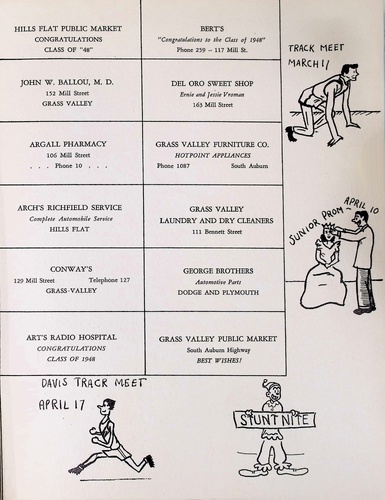 HILLS FLAT PUBLIC MARKET
CONGRATULATIONS
CLASS OF "48"
BERT'S
"Congratulations to the Class of 1948"
Phone 259 – 117 Mill St.
JOHN W. BALLOU, M. D.
152 Mill Street
GRASS VALLEY
DEL ORO SWEET SHOP
Ernie and Jessie Vroman
163 Mill Street
ARGALL PHARMACY
106 Mill Street
. . . Phone 10 . . .
GRASS VALLEY FURNITURE CO.
HOTPOINT APPLIANCES
Phone 1087 South Auburn
ARCH'S RICHFIELD SERVICE
Complete Automobile Service
HILLS FLAT
GRASS VALLEY
LAUNDRY AND DRY CLEANERS
111 Bennett Street
CONWAY'S
129 Mill Street Telephone 127
GRASS-VALLEY
GEORGE BROTHERS
Automotive Parts
DODGE AND PLYMOUTH
ART'S RADIO HOSPITAL
CONGRATULATIONS
CLASS OF 1948
GRASS VALLEY PUBLIC MARKET
South Auburn Highway
BEST WISHES!
TRACK MEET
MARCH 11
JUNIOR PROM - APRIL 10
DAVIS TRACK MEET
APRIL 17
STUNT NITE